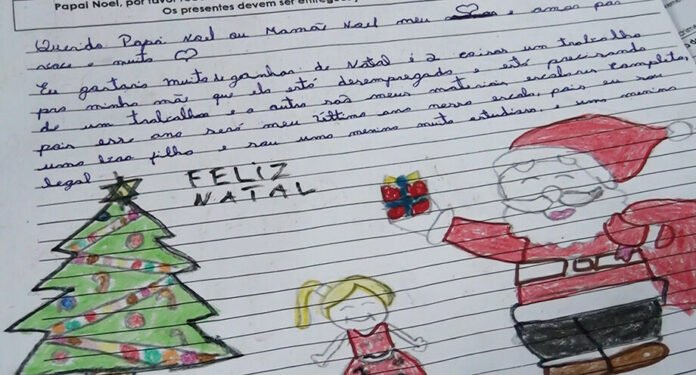 Papai Noel, por favor
Os presentes devem ser entregues
Querido Papai Noel ou Mamãe Noel meu amor por
voce e muito
Eu gostaria muito de ganhar de Natal é 2 coisas um trabalho
pra minha mãe que ela está desempregada e está precisando
de um trabalho e a outra são meus materiais escolares completo,
pois esse ano será meu último ano nessa escola, pois eu sou
um bom filho e sou um menino muito estudioso e um menino
legal
FELIZ
NATAL